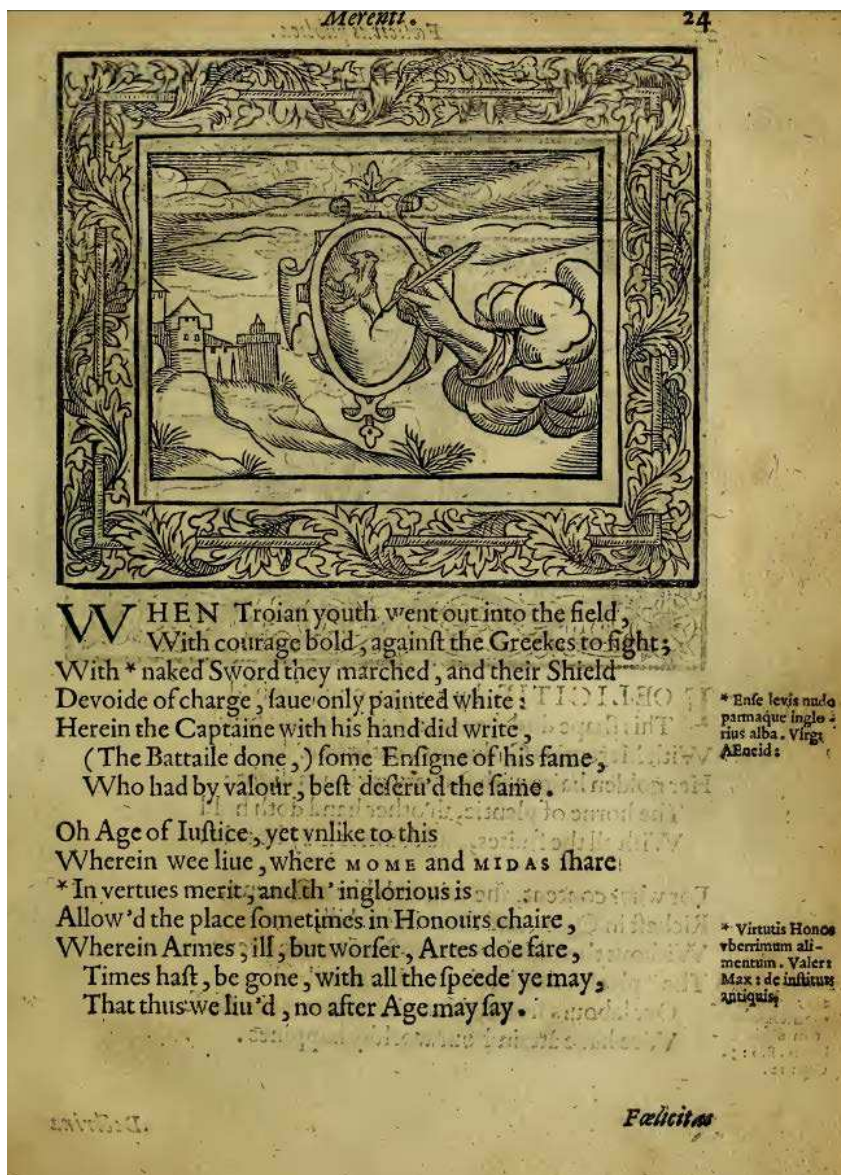 Merenti.
24
WHEN Troian youth went out into the field,
With courage bold, againſt the Greekes to fight;
With * naked Sword they marched, and their Shield
Devoide of charge, ſaue only painted white:
Herein the Captaine with his hand did write,
(The Battaile done,) ſome Enſigne of his fame,
Who had by valour, beſt deſeru'd the ſame.
* Enſe levis nudo
parmaque inglo-
rius alba. Virg:
AEneid:
Oh Age of Iuſtice, yet vnlike to this
Wherein wee liue, where MOME and MIDAS ſhare
* In vertues merit, and th' inglorious is
Allow'd the place ſometimes in Honours chaire,
Wherein Armes, ill, but worſer, Artes doe fare,
Times haſt, be gone, with all the ſpeede ye may,
That thus we liu'd, no after Age may ſay.
* Virtutis Honos
vberrimum ali-
mentum. Valer:
Max: de inſtitutis
antiquis;
Fœlicitas